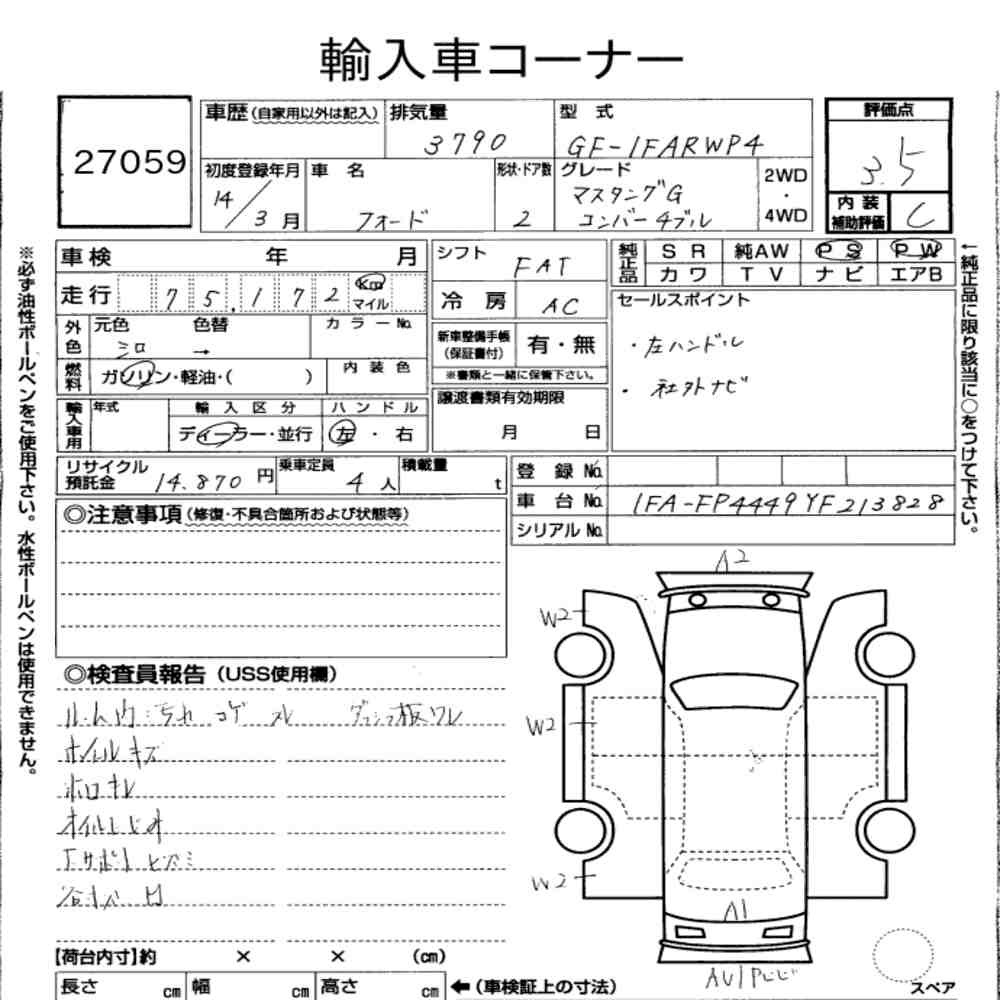 輸入車コーナー
27059
車歴(自家用以外は記入) 排気量 3790 型式 GF-1FARWP4
評価点 3.5
初度登録年月 14/3月 車名 フォード 形状・ドア数 2 グレード マスタングG コンバーチブル 2WD・4WD
内装補助評価 C
※必ず油性ボールペンをご使用下さい。水性ボールペンは使用できません。
車検 年 月
走行 75,172 Km マイル
外色 元色 シロ 色替 → カラーNo.
燃料 ガソリン・軽油・( ) 内装色
輸入車用 年式 輸入区分 ディーラー・並行 ハンドル 左・右
シフト FAT
冷房 AC
新車整備手帳(保証書付) 有・無
※書類と一緒に保管下さい。
譲渡書類有効期限
月 日
純正品 SR 純AW PS PW
カワ TV ナビ エアB
セールスポイント
・左ハンドル
・社外ナビ
←純正品に限り該当に○をつけて下さい。
リサイクル預託金 14,870円 乗車定員 4人 積載量 t
登録No.
車台No. 1FA-FP4449YF213828
シリアルNo.
◎注意事項(修復・不具合箇所および状態等)
◎検査員報告(USS使用欄)
ルーム内汚れ コゲ スレ ダッシュ板ワレ
ホイルキズ
ホロキレ
オイルにじみ
Fサポートヒズミ
A2
W2
W2
W2
A1
スペア
【荷台内寸】約 × × (cm)
長さ cm 幅 cm 高さ cm ←(車検証上の寸法)